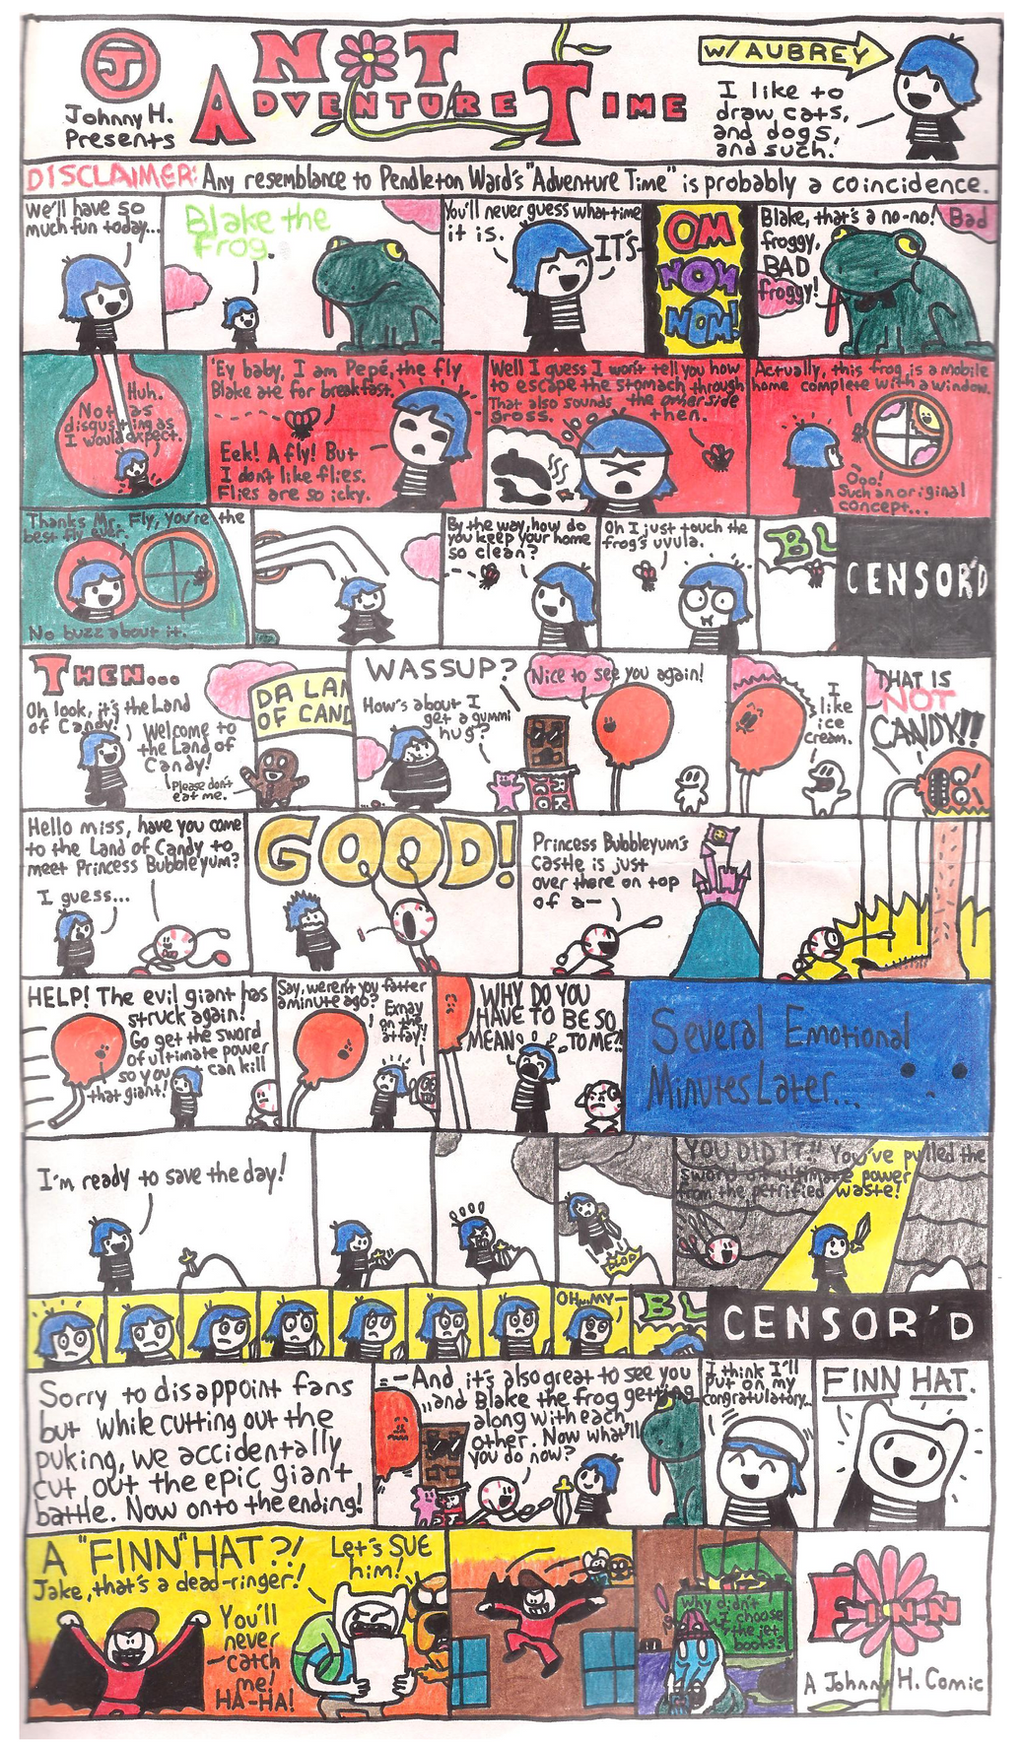 J
Johnny H.
Presents
NOT
ADVENTURE TIME
W/ AUBREY
I like to
draw cats,
and dogs,
and such.
DISCLAIMER: Any resemblance to Pendleton Ward's "Adventure Time" is probably a coincidence.
We'll have so
much fun today...
Blake the
frog.
You'll never guess what time
it is.
IT'S-
OM
NOM
NOM!
Blake, that's a no-no! Bad
froggy,
BAD
froggy!
Huh.
Not as
disgusting as
I would expect.
'Ey baby, I am Pepé, the fly
Blake ate for breakfast.
Eek! A fly! But
I don't like flies.
Flies are so icky.
Well I guess I won't tell you how
to escape the stomach through
the other side
then.
That also sounds
gross.
Actually, this frog is a mobile
home complete with a window.
Ooo!
Such an original
concept...
Thanks Mr. Fly, you're the
best fly ever.
No buzz about it.
By the way, how do
you keep your home
so clean?
Oh I just touch the
frog's uvula.
BL
CENSOR'D
THEN...
Oh look, it's the Land
of Candy!
Welcome to
the Land of
Candy!
Please don't
eat me.
DA LAN
OF CAND
WASSUP?
How's about I
get a gummi
hug?
Nice to see you again!
I
like
ice
cream.
THAT IS
NOT
CANDY!!!
Hello miss, have you come
to the Land of Candy to
meet Princess Bubbleyum?
I guess...
GOOD!
Princess Bubbleyum's
Castle is just
over there on top
of a-
HELP! The evil giant has
struck again!
Go get the sword
of ultimate power
so you can kill
that giant!
Say, weren't you fatter
a minute ago?
Exnay
on the
atfay!
WHY DO YOU
HAVE TO BE SO
MEAN TO ME?!
Several Emotional
Minutes Later...
I'm ready to save the day!
PLOP
YOU DID IT!! You've pulled the
sword of ultimate power
from the petrified waste!
OH MY-
BL
CENSOR'D
Sorry to disappoint fans
but while cutting out the
puking, we accidentally
cut out the epic giant
battle. Now onto the ending!
-And it's also great to see you
and Blake the frog getting
along with each
other. Now what'll
you do now?
I think I'll
put on my
congratulatory...
FINN HAT.
A "FINN" HAT?!
Jake, that's a dead-ringer!
Let's SUE
him!
You'll
never
catch
me!
HA-HA!
Why didn't
I choose
the jet
boots?
FINN
A Johnny H. Comic